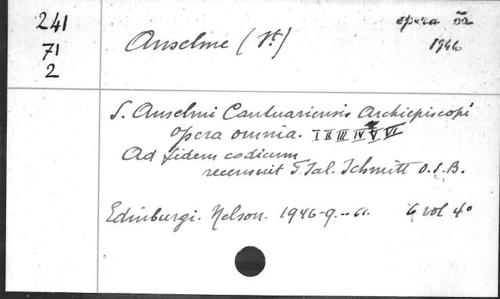 241
71
2
Anselme (St)
opera oa
1946
S. Anselmi Cantuariensis Archiepiscopi
opera omnia. I II III IV V VI
Ad fidem codicum
recensuit F. Sal. Schmitt O.S.B.
Edinburgi. Nelson. 1946-9.-- 61. 6 vol 4°